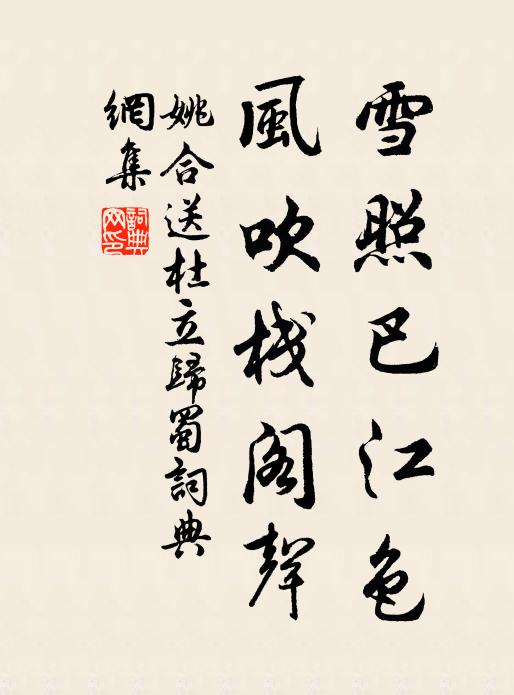 雪照巴江色
風吹棧阁聲
姚合送杜立歸蜀詞典
網集
詞典
网印